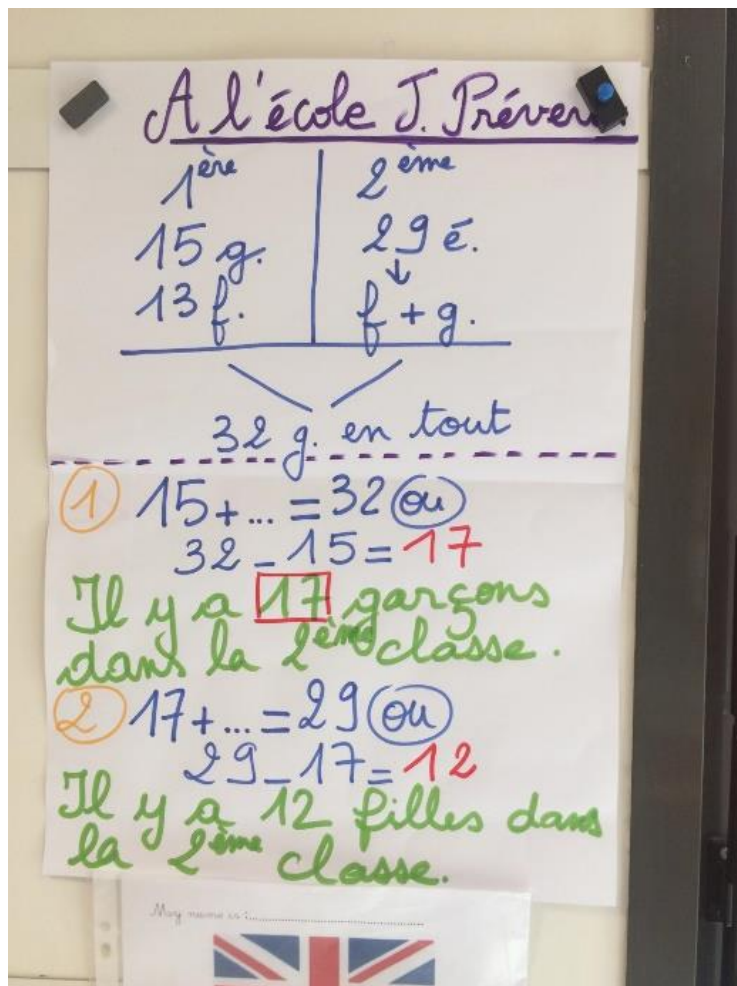 A l'école J. Préver
1ère 2ème
15 g. 29 é.
↓
13 f. f + g.
32 g. en tout
1 15 + ... = 32 ou
32 - 15 = 17
Il y a 17 garçons
dans la 2ème classe.
2 17 + ... = 29 ou
29 - 17 = 12
Il y a 12 filles dans
la 2ème classe.
My name is :..........